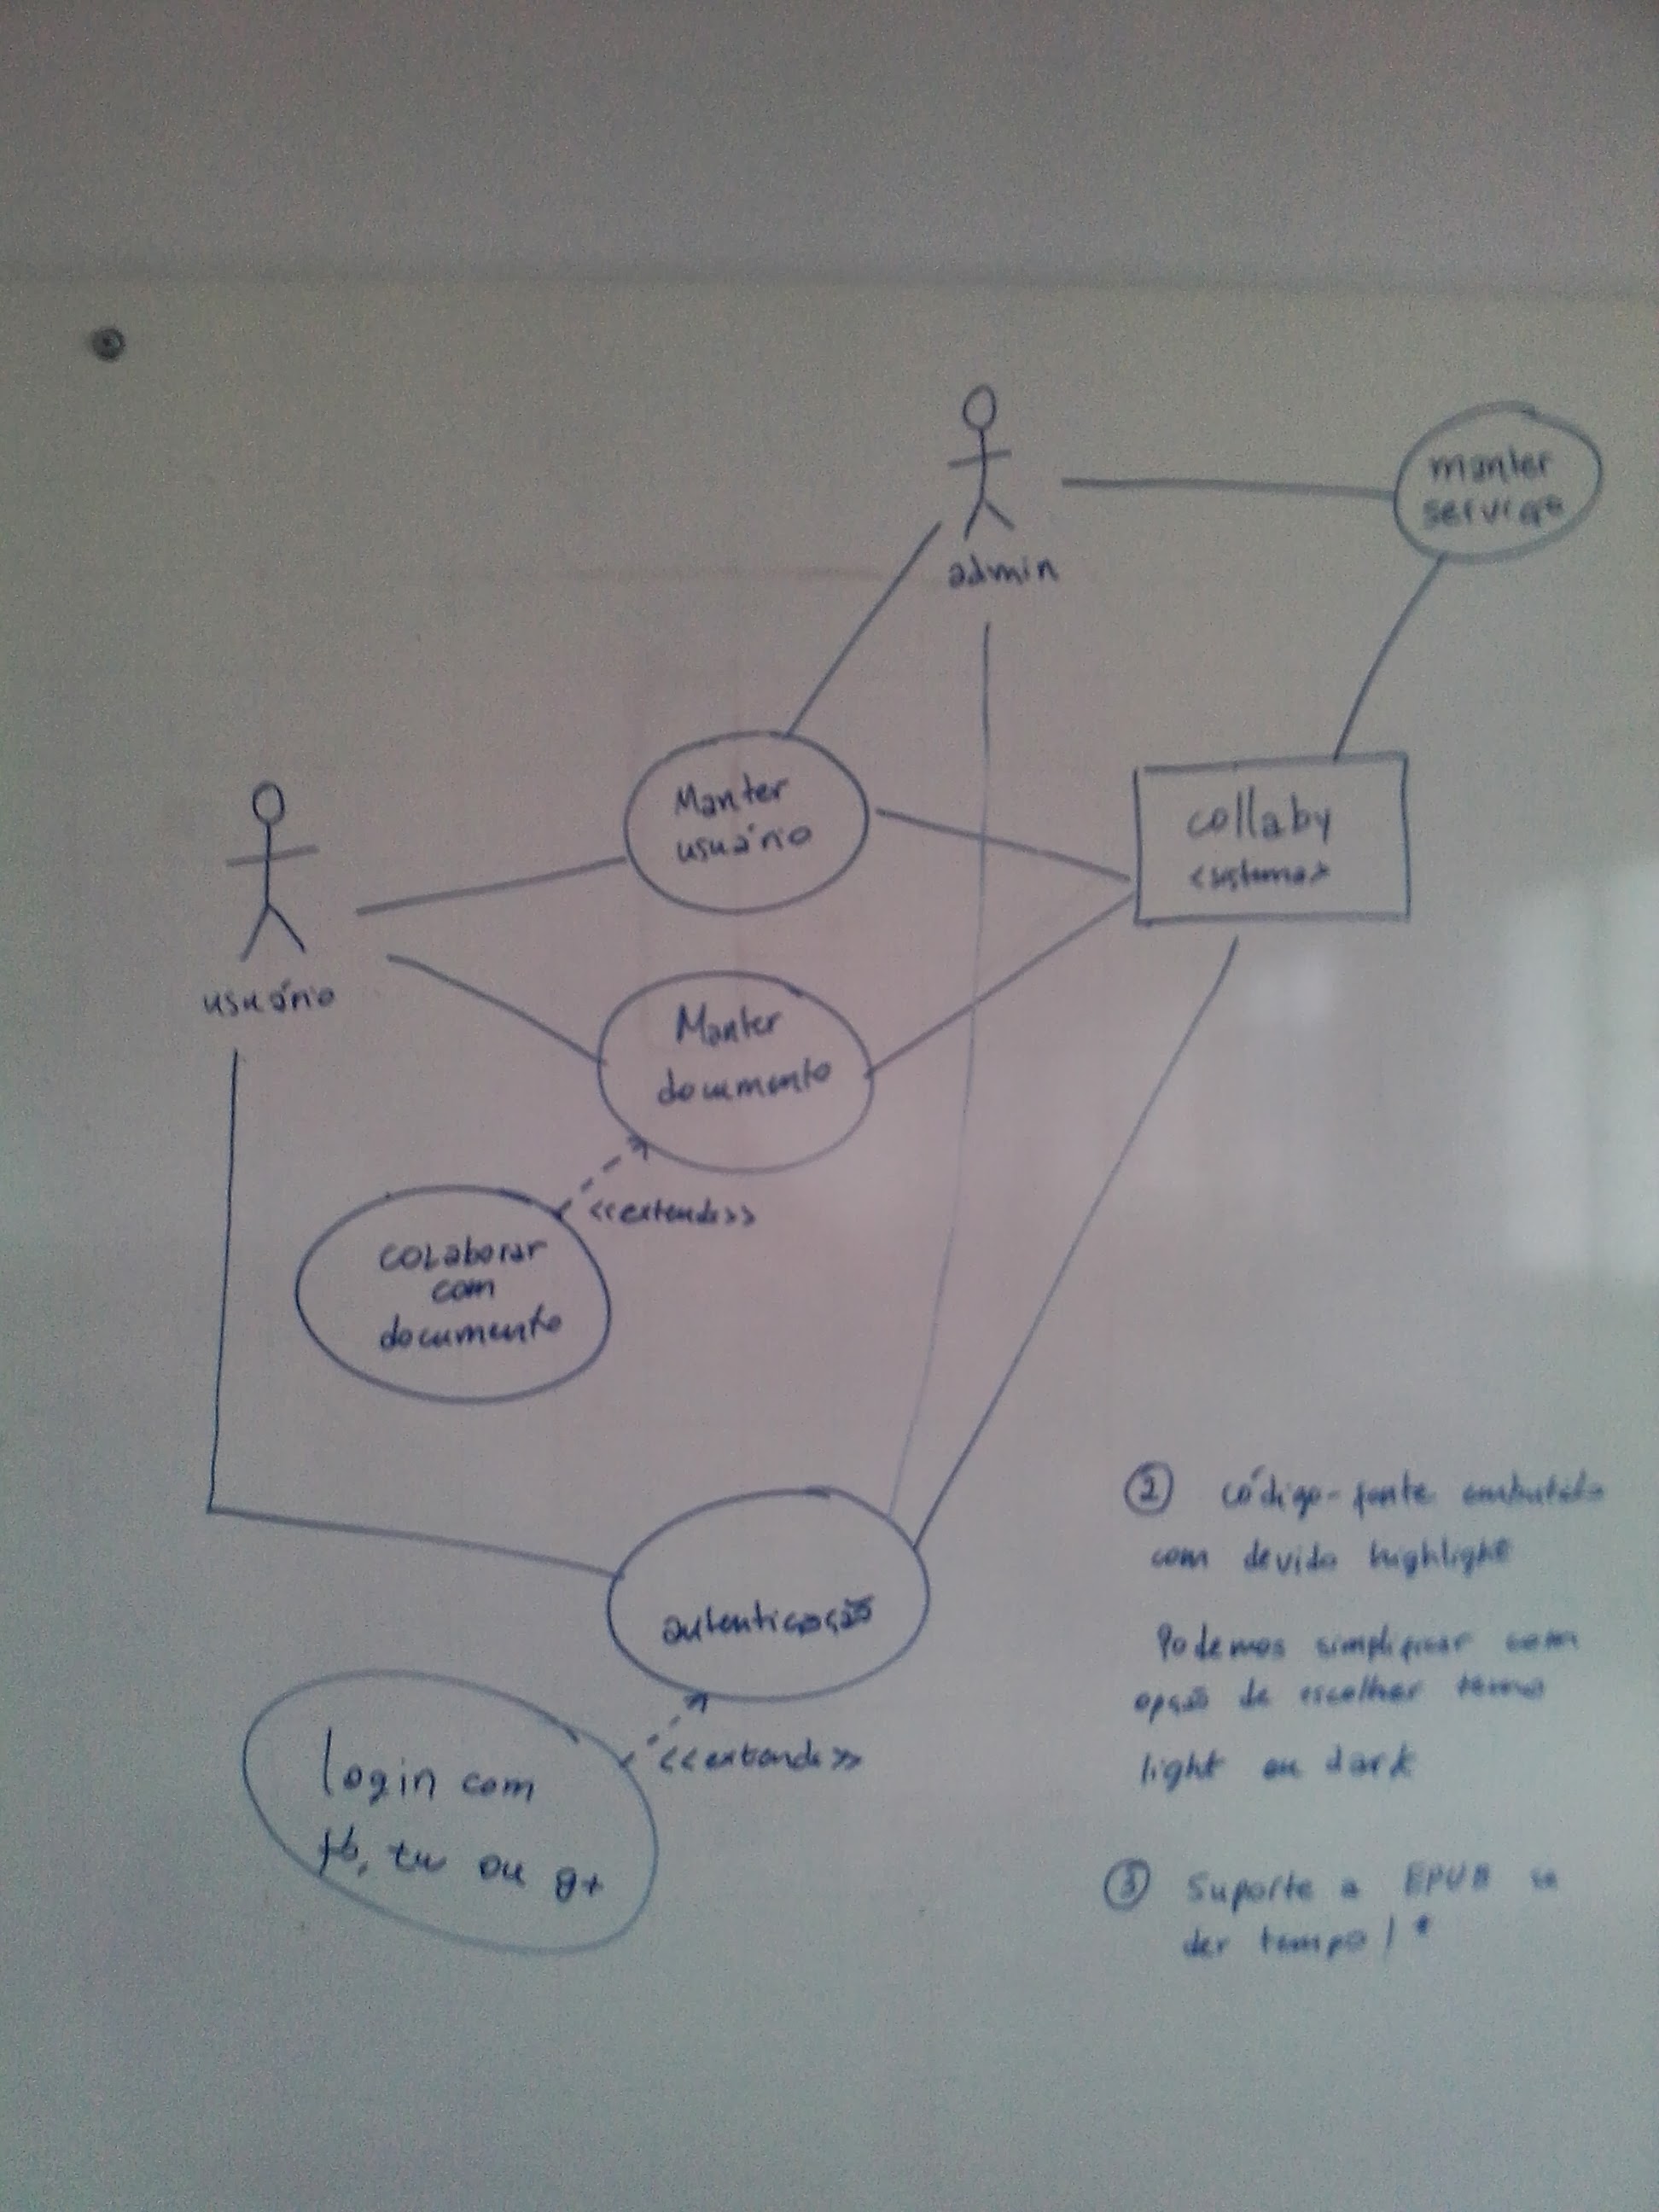 admin
manter
serviços
Manter
usuário
collaby
<sistema>
usuário
Manter
documento
<<extende>>
colaborar
com
documento
autenticação
<<extende>>
login com
fb, tw ou g+
② código-fonte embutido
com devido highlight
Podemos simplificar com
opção de escolher tema
light ou dark
③ Suporte a EPUB se
der tempo! *